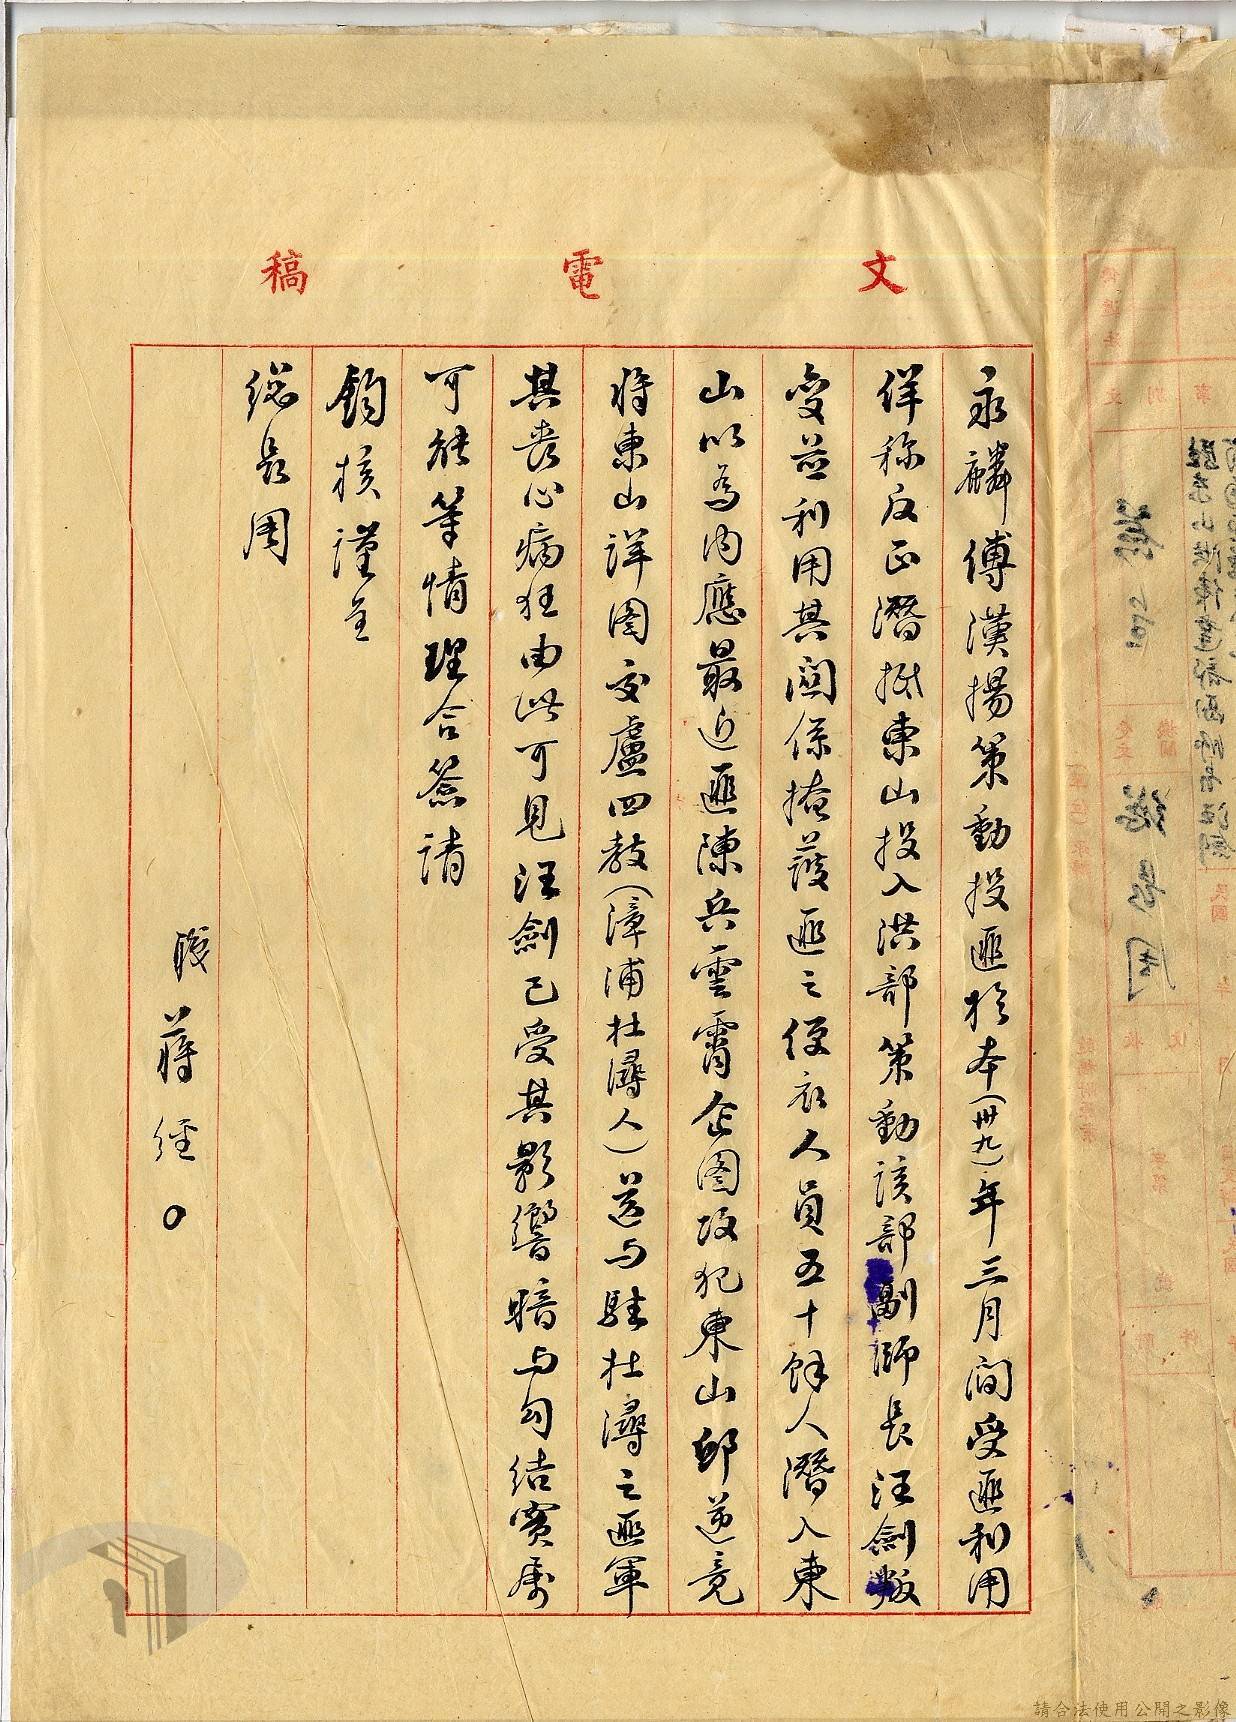 文電稿
永麟傅漢揚策動投匪於本(卅九)年三月間受匪利用
佯称反正潛抵東山投入洪部策動該部副師長汪劍叛
变並利用其関係掩護匪之便衣人員五十餘人潛入東
山以為內應最近匪陳兵雲霄企图攻犯東山邱逆竟
將東山詳图交盧四教(漳浦杜潯人)送与駐杜潯之匪軍
其喪心病狂由此可見汪劍已受其影響暗与勾結實屬
可能等情理合簽請
鈞核謹呈
總長周
職蔣經〇
請合法使用公開之影像